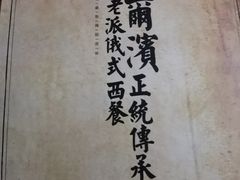 爾濱正統傳承
老派俄式西餐